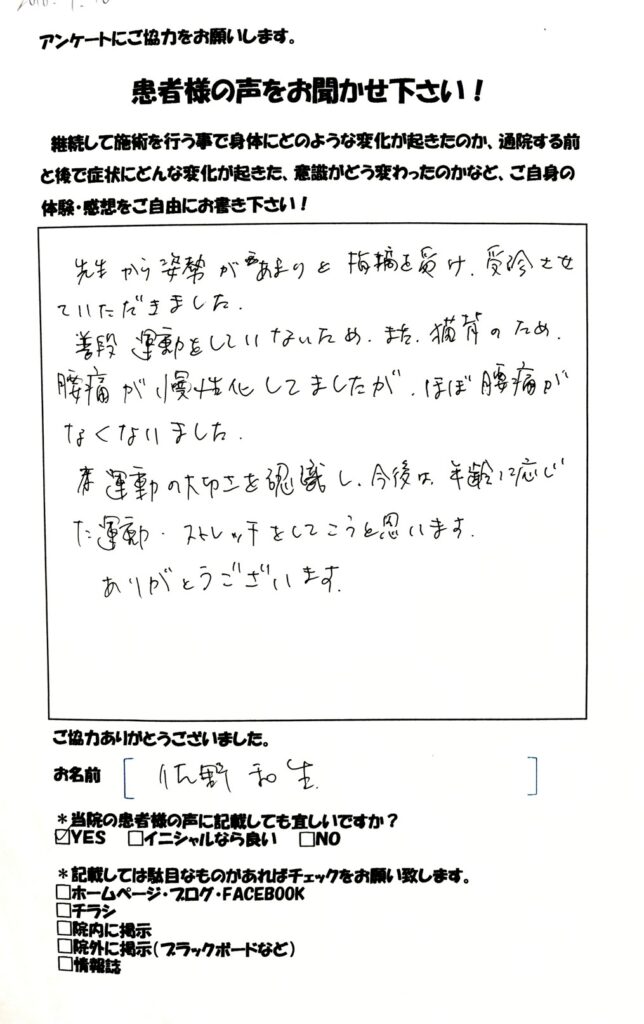 アンケートにご協力をお願いします。
患者様の声をお聞かせ下さい！
継続して施術を行う事で身体にどのような変化が起きたのか、通院する前
と後で症状にどんな変化が起きた、意識がどう変わったのかなど、ご自身の
体験・感想をご自由にお書き下さい！
先生から姿勢があまりと指摘を受け、受診させ
ていただきました。
普段運動をしていないため、また、猫背のため、
腰痛が慢性化してましたが、ほぼ腰痛が
なくないました。
運動の大切さを認識し、今後は、年齢に応じ
た運動・ストレッチをしてこうと思います。
ありがとうございます。
ご協力ありがとうございました。
お名前 [佐野和生]
＊当院の患者様の声に記載しても宜しいですか？
☑YES □イニシャルなら良い □NO
＊記載しては駄目なものがあればチェックをお願い致します。
□ホームページ・ブログ・FACEBOOK
□チラシ
□院内に掲示
□院外に掲示（ブラックボードなど）
□情報誌